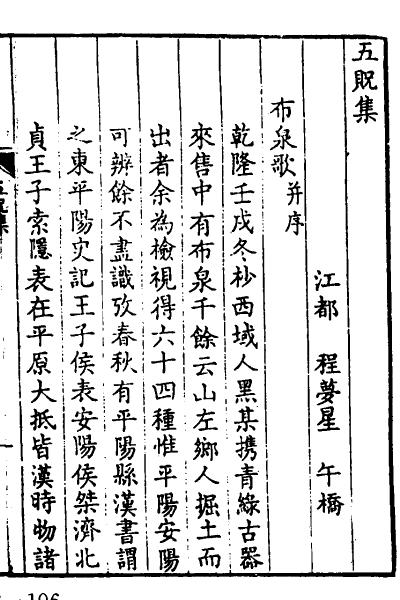 五貺集
江都 程夢星 午橋
布泉歌并序
乾隆壬戌冬杪西域人黑某携青綠古器
來售中有布泉千餘云山左鄉人掘土而
出者余為檢視得六十四種惟平陽安陽
可辨餘不盡識攷春秋有平陽縣漢書謂
之東平陽史記王子侯表安陽侯桀濟北
貞王子索隱表在平原大抵皆漢時物諸
五貺集
106